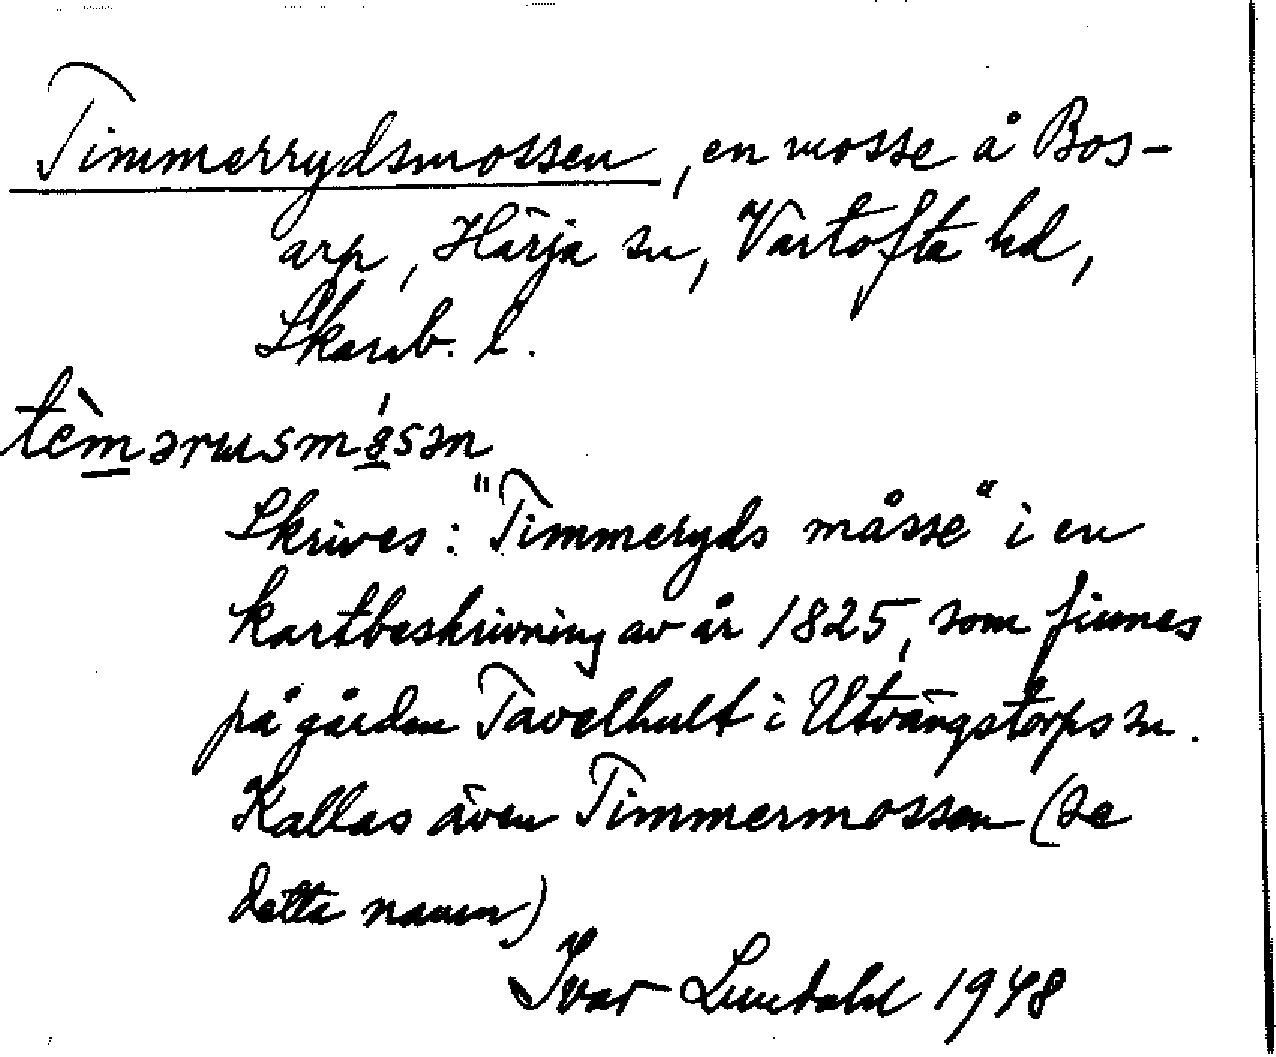 Timmerrydsmossen, en mosse å Bos-
arp, Härja sn, Vartofta hd,
Skarab. l.
tèmərɯsmósən
Skrives: "Timmeryds måsse" i en
kartbeskrivning av år 1825, som finnes
på gården Tavelhult i Utvängstorps sn.
Kallas även Timmermossen (se
detta namn)
Ivar Lundahl 1948